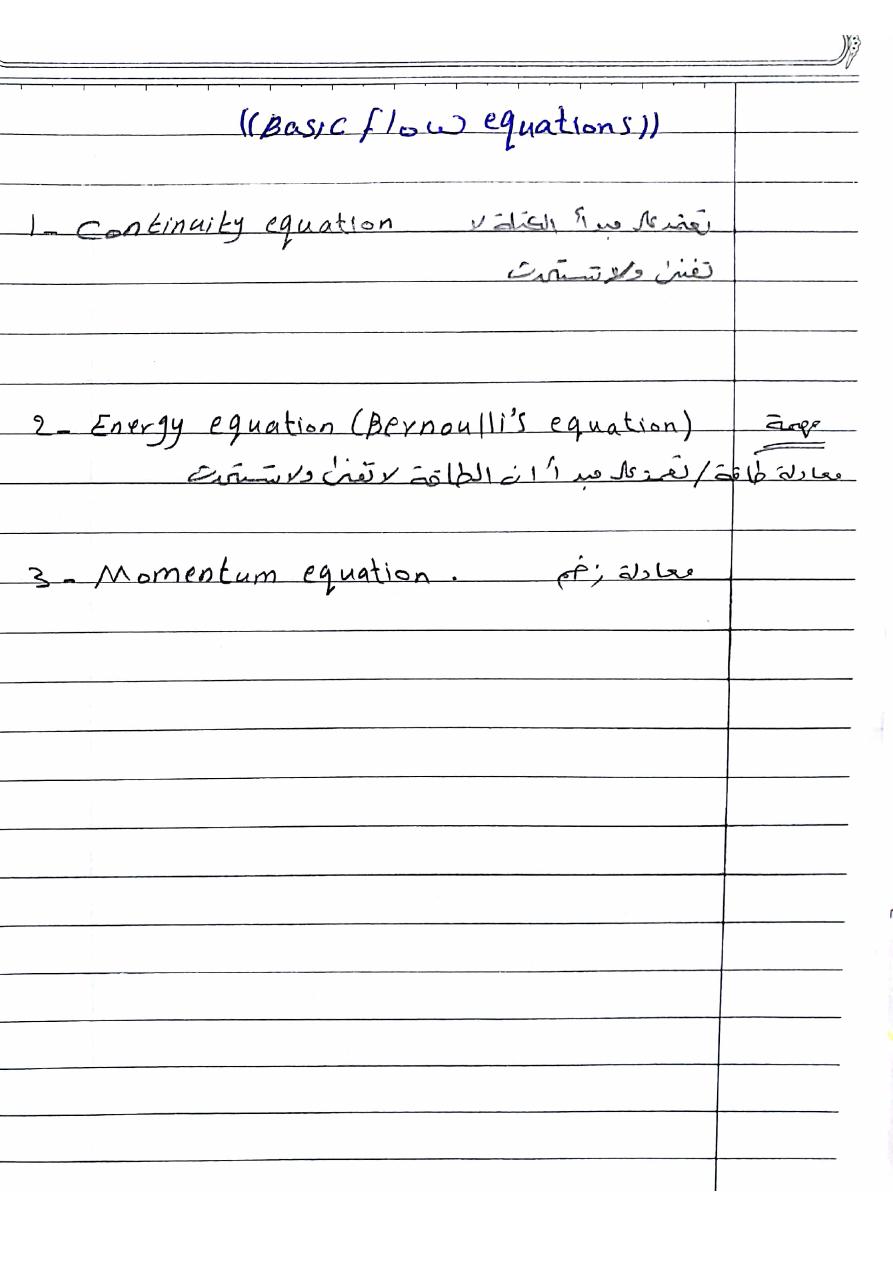 ((Basic flow equations))
1- Continuity equation تعتمد على مبدأ الكتلة لا
تفنى ولا تستحدث
2- Energy equation (Bernoulli's equation) مهمة
معادلة طاقة / تعتمد على مبدأ ان الطاقة لا تفنى ولا تستحدث
3- Momentum equation . معادلة زخم